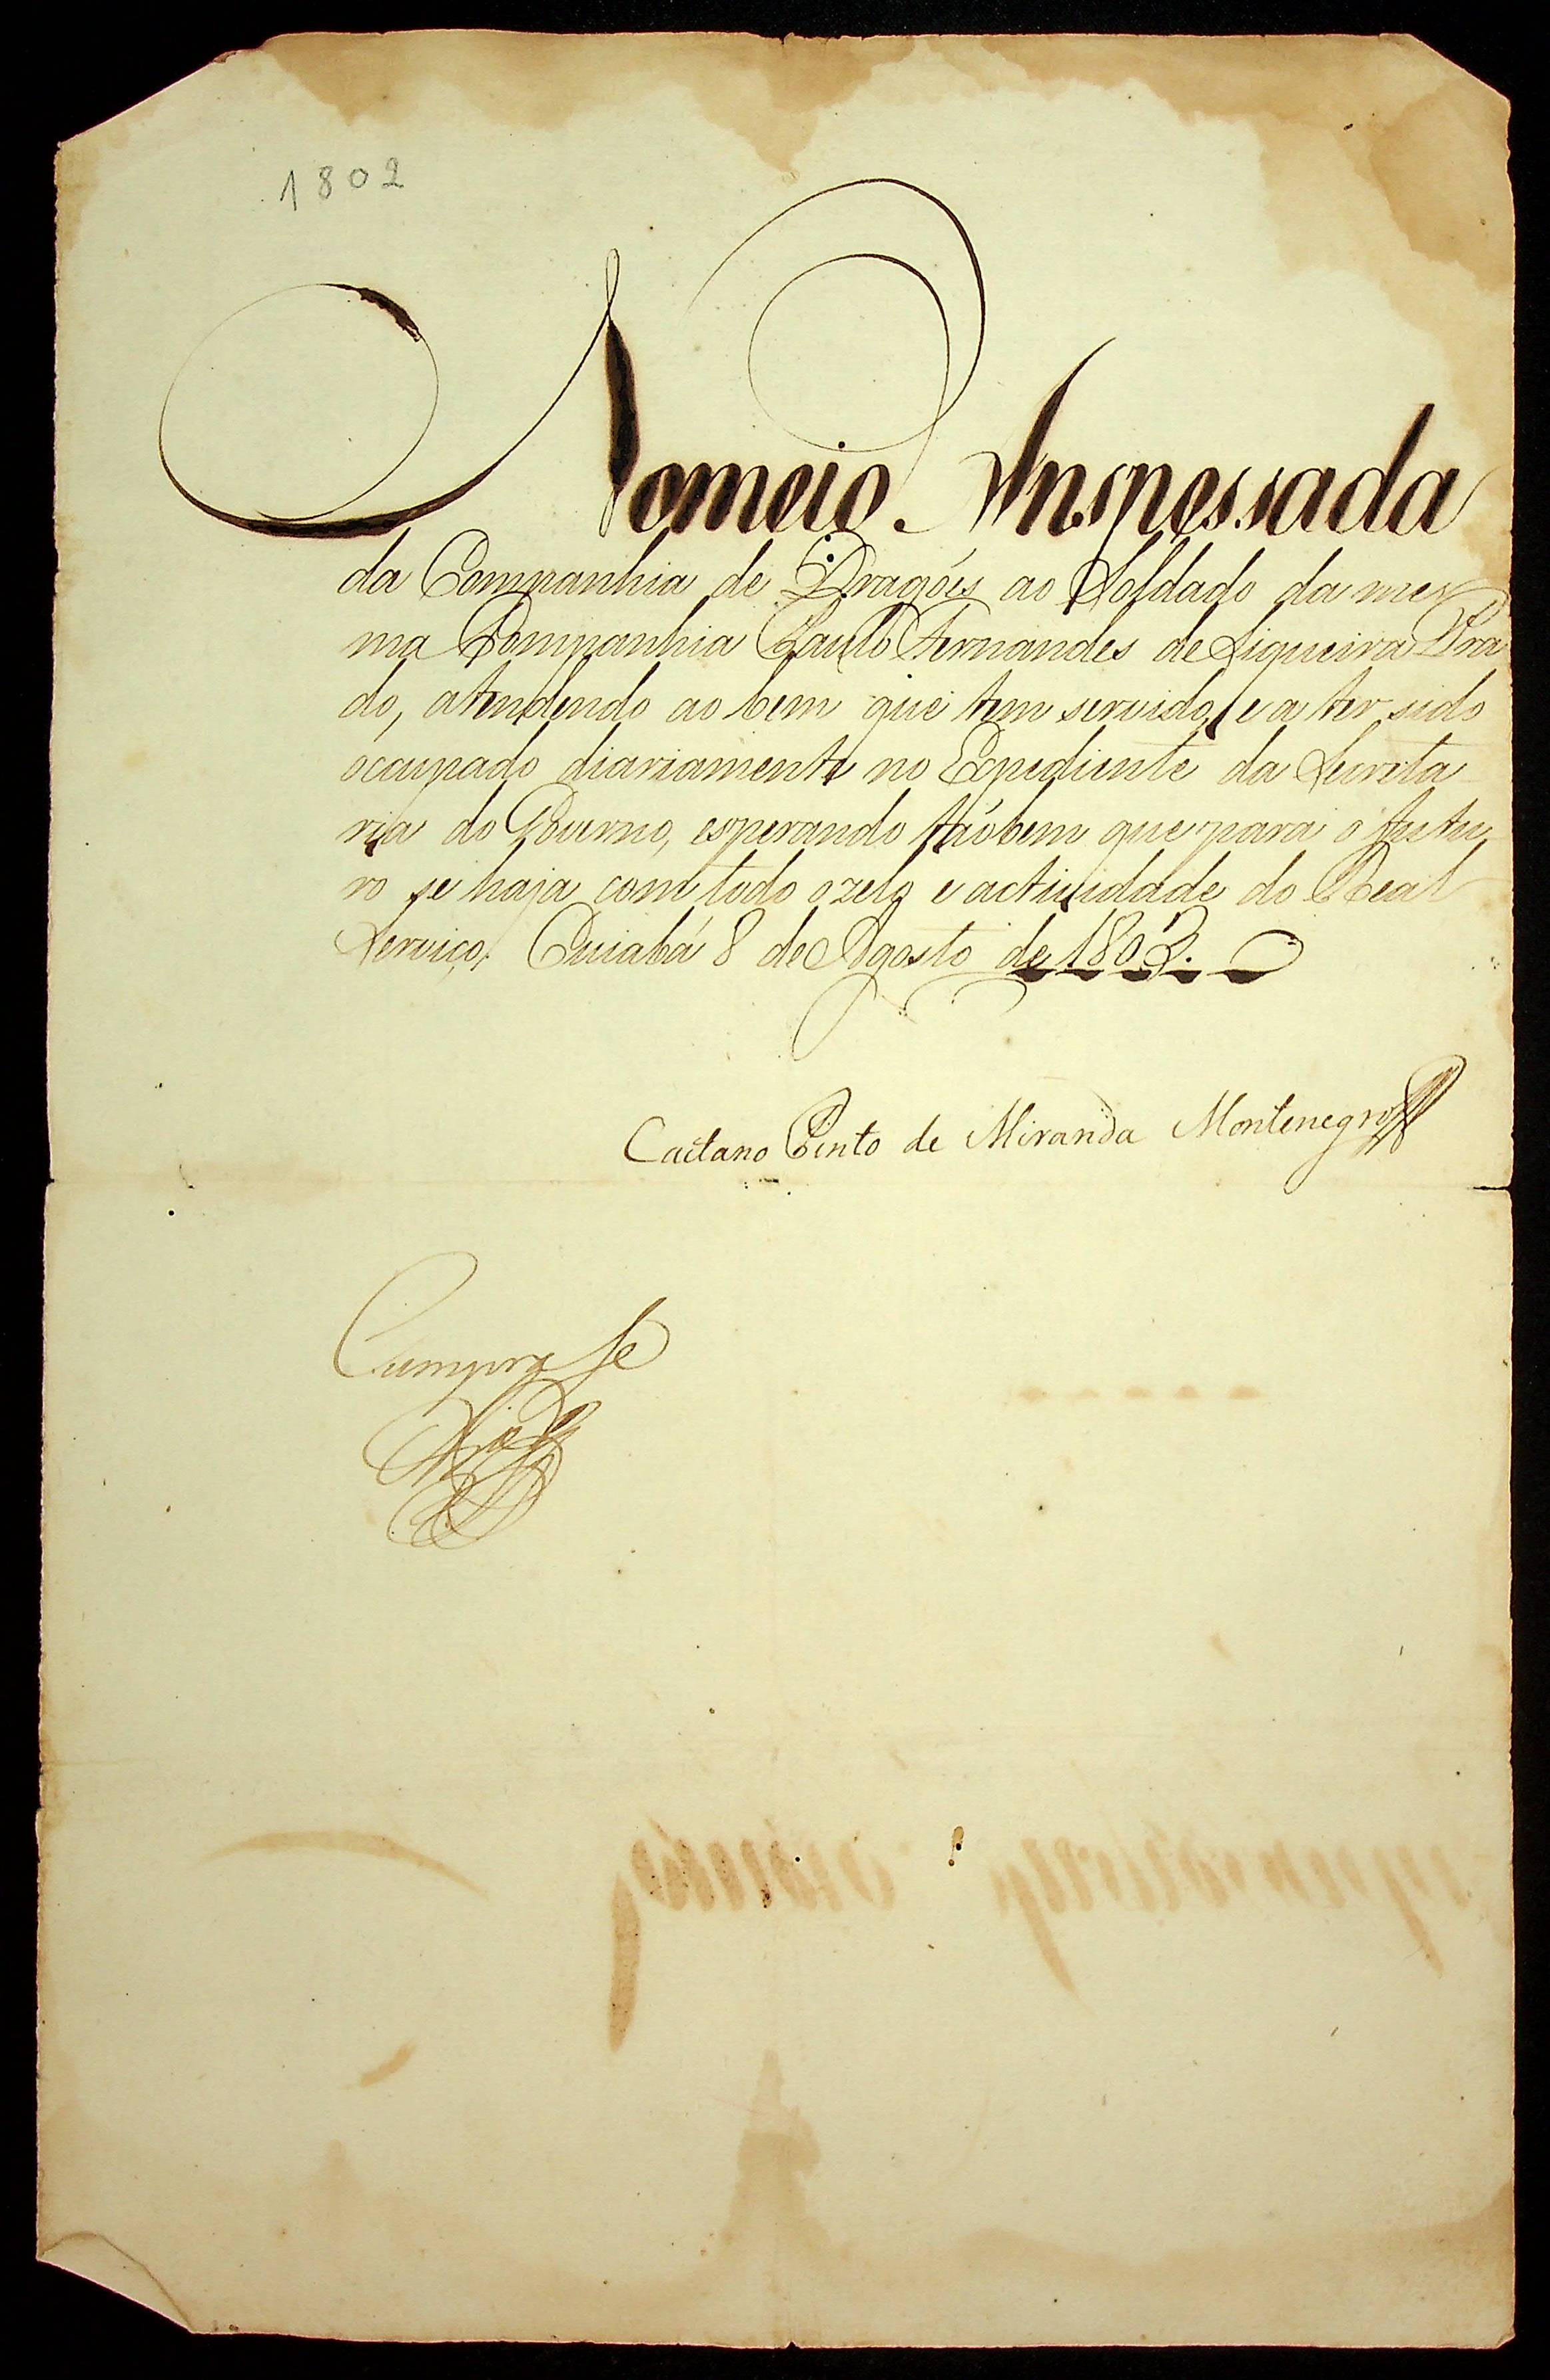 1802
Nomeio Anspessada
da Companhia de Dragóis ao Soldado da mes
ma Companhia Paulo Fernandes de Siqueira Pra
do, atendendo ao bem que tem servido, e a ter sido
ocupado diariamente no Expediente da Secreta
ria do Governo, esperando táobem que para o futu
ro se haja com todo o zelo e actividade do Real
Serviço. Cuiabá 8 de Agosto de 1802.
Caetano Pinto de Miranda Montenegro
Cumpra se